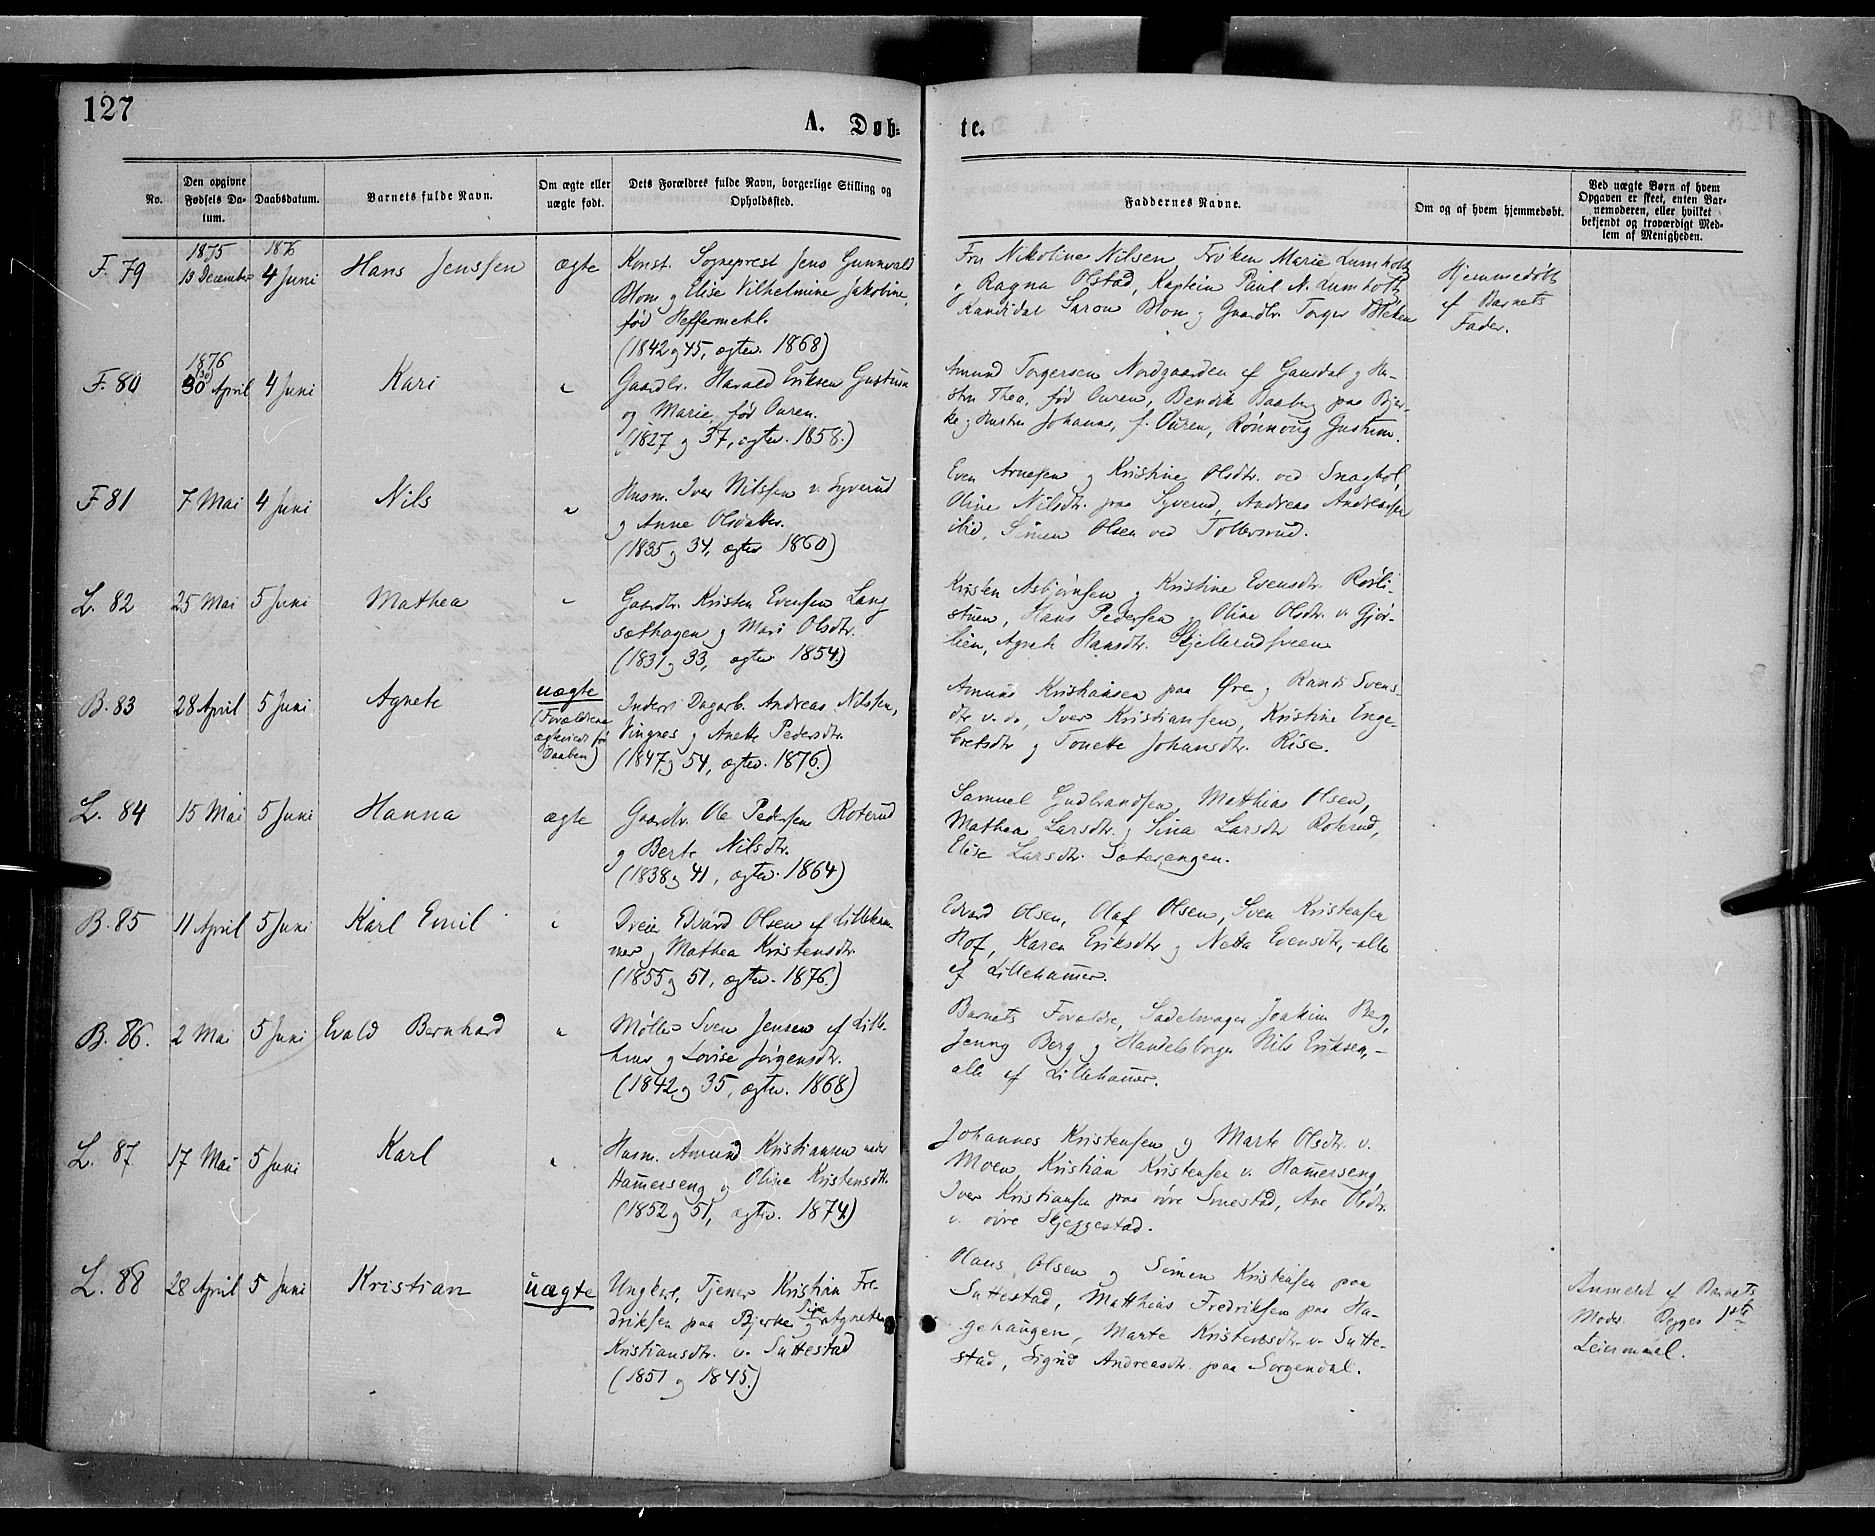 127
A. Døb-
te.
No.
Den opgivne Fødsels Da-tum.
Daabsdatum.
Barnets fulde Navn.
Om ægte eller uægte født.
Dets Forældres fulde Navn, borgerlige Stilling og Opholdssted.
Faddernes Navne.
Om og af hvem hjemmedøbt.
Ved uægte Børn af hvem Opgaven er skeet, enten Bar-nemoderen, eller hvilket bekjendt og troværdigt Med-lem af Menigheden.
1875 1876
F. 79 13 December 4 Juni Hans Jenssen ægte
Konst. Sogneprest Jens Gunnvald
Blom og Elise Vilhelmine Jakobine,
født Heffermehl.
(1842 og 45, ægtev. 1868)
Fru Nikoline Nilsen, Frøken Marie Lumholtz
Ragna Olstad, Kaptein Paul N. Lumholtz
Kandidat Blom og Gaardbr. Torger
Hjemmedøbt
af Barnets
Fader.
1876
F. 80 30 April 4 Juni Kari "
Gaardbr. Harald Eriksen Gustum
og Marie, født Ouren.
(1827 og 37, ægtev. 1858.)
Amund Torgersen Nordgaarden af Gausdal og Hu-
stru Thea, født Ouren, Bendik Baaberg paa Bjer-
ke og Hustru Johanne, f. Ouren, Rønnoug Gustum.
F 81 7 Mai 4 Juni Nils "
Husm. Iver Nilssen v. Syverud
og Anne Olsdatter.
(1835 og 34, ægtev 1860)
Even Arnesen og Kristine Olsdtr. ved
Oline Nilsdtr. paa Syverud, Andreas Andreassen
ibid, Simen Olsen ved Tollersrud.
L. 82 25 Mai 5 Juni Mathea "
Gaardbr. Kristen Evensen Lang
sæthagen og Mari Olsdtr.
(1831 og 33, ægtev 1854.)
Kristen Asbjørnsen og Kristine Evensdtr. Røsli-
stuen, Hans Pedersen og Oline Olsdtr. v. Gjør-
lien, Agnete Hansdtr. Skjellerudsveen
B. 83 28 April 5 Juni Agnete uægte
(Forældrene
ægteviede før
Daaben)
Inders. Dagarb. Andreas Nilssen,
Vingnes og Anette Pedersdtr.
(1847 og 54, ægtev. 1876.)
Amund Kristiansen paa Øre og Randi Svens-
dtr v. do, Iver Kristiansen, Kristine Enge-
bretsdtr og Tonette Johansdtr. Rise.
L. 84 15 Mai 5 Juni Hanna ægte
Gaardbr. Ole Pedersen Roterud
og Berte Nilsdtr.
(1838 og 41, ægtev. 1864)
Samuel Gudbrandsen, Matthias Olsen,
Mathea Larsdtr. og Sina Larsdtr Roterud,
Elise Larsdtr. Sæterengen.
B. 85 11 April 5 Juni Karl Emil "
Dreier Edvard Olsen af Lilleham-
mer og Mathea Kristensdtr.
(1855 og 51, ægtev. 1876.)
Edvard Olsen, Olaf Olsen, Sven Kristensen
Hof, Karen Eriksdtr og Netta Evensdtr, - alle
af Lillehamer.
B. 86. 2 Mai 5 Juni Evald Bernhard "
Møller Sven Jensen af Lille-
hmr og Lovise Jørgensdtr.
(1842 og 35, ægtev. 1868)
Barnets Forældre, Sadelmager Joakim Berg,
Jenny Berg og Handelsborger Nils Eriksen, -
alle af Lillehamer.
L. 87 17 Mai 5 Juni Karl "
Husm. Amund Kristiansen under
Hamerseng og Oline Kristensdtr.
(1852 og 51, ægtev. 1874)
Johannes Kristensen og Marte Olsdtr. v.
Moen, Kristian Kristensen v. Hamerseng,
Iver Kristiansen paa øvre Smestad, Ane Olsdtr.
v. øvre Skjeggestad.
L. 88 28 April 5 Juni Kristian uægte
Ungkarl, Tjener Kristian Fre-
driksen paa Bjerke og Pige Agnethe
Kristiansdtr. v. Suttestad
(1851 og 1845.)
Hans Olsen og Simen Kristensen paa
Suttestad, Matthias Fredriksen paa Ha-
gehaugen, Marte Kristensdtr. v. Sutte-
stad, Sigrid Andreasdtr. paa Sorgendal.
Anmeldt af Barnets
Moder. Begges 1ste
Leiermaal.